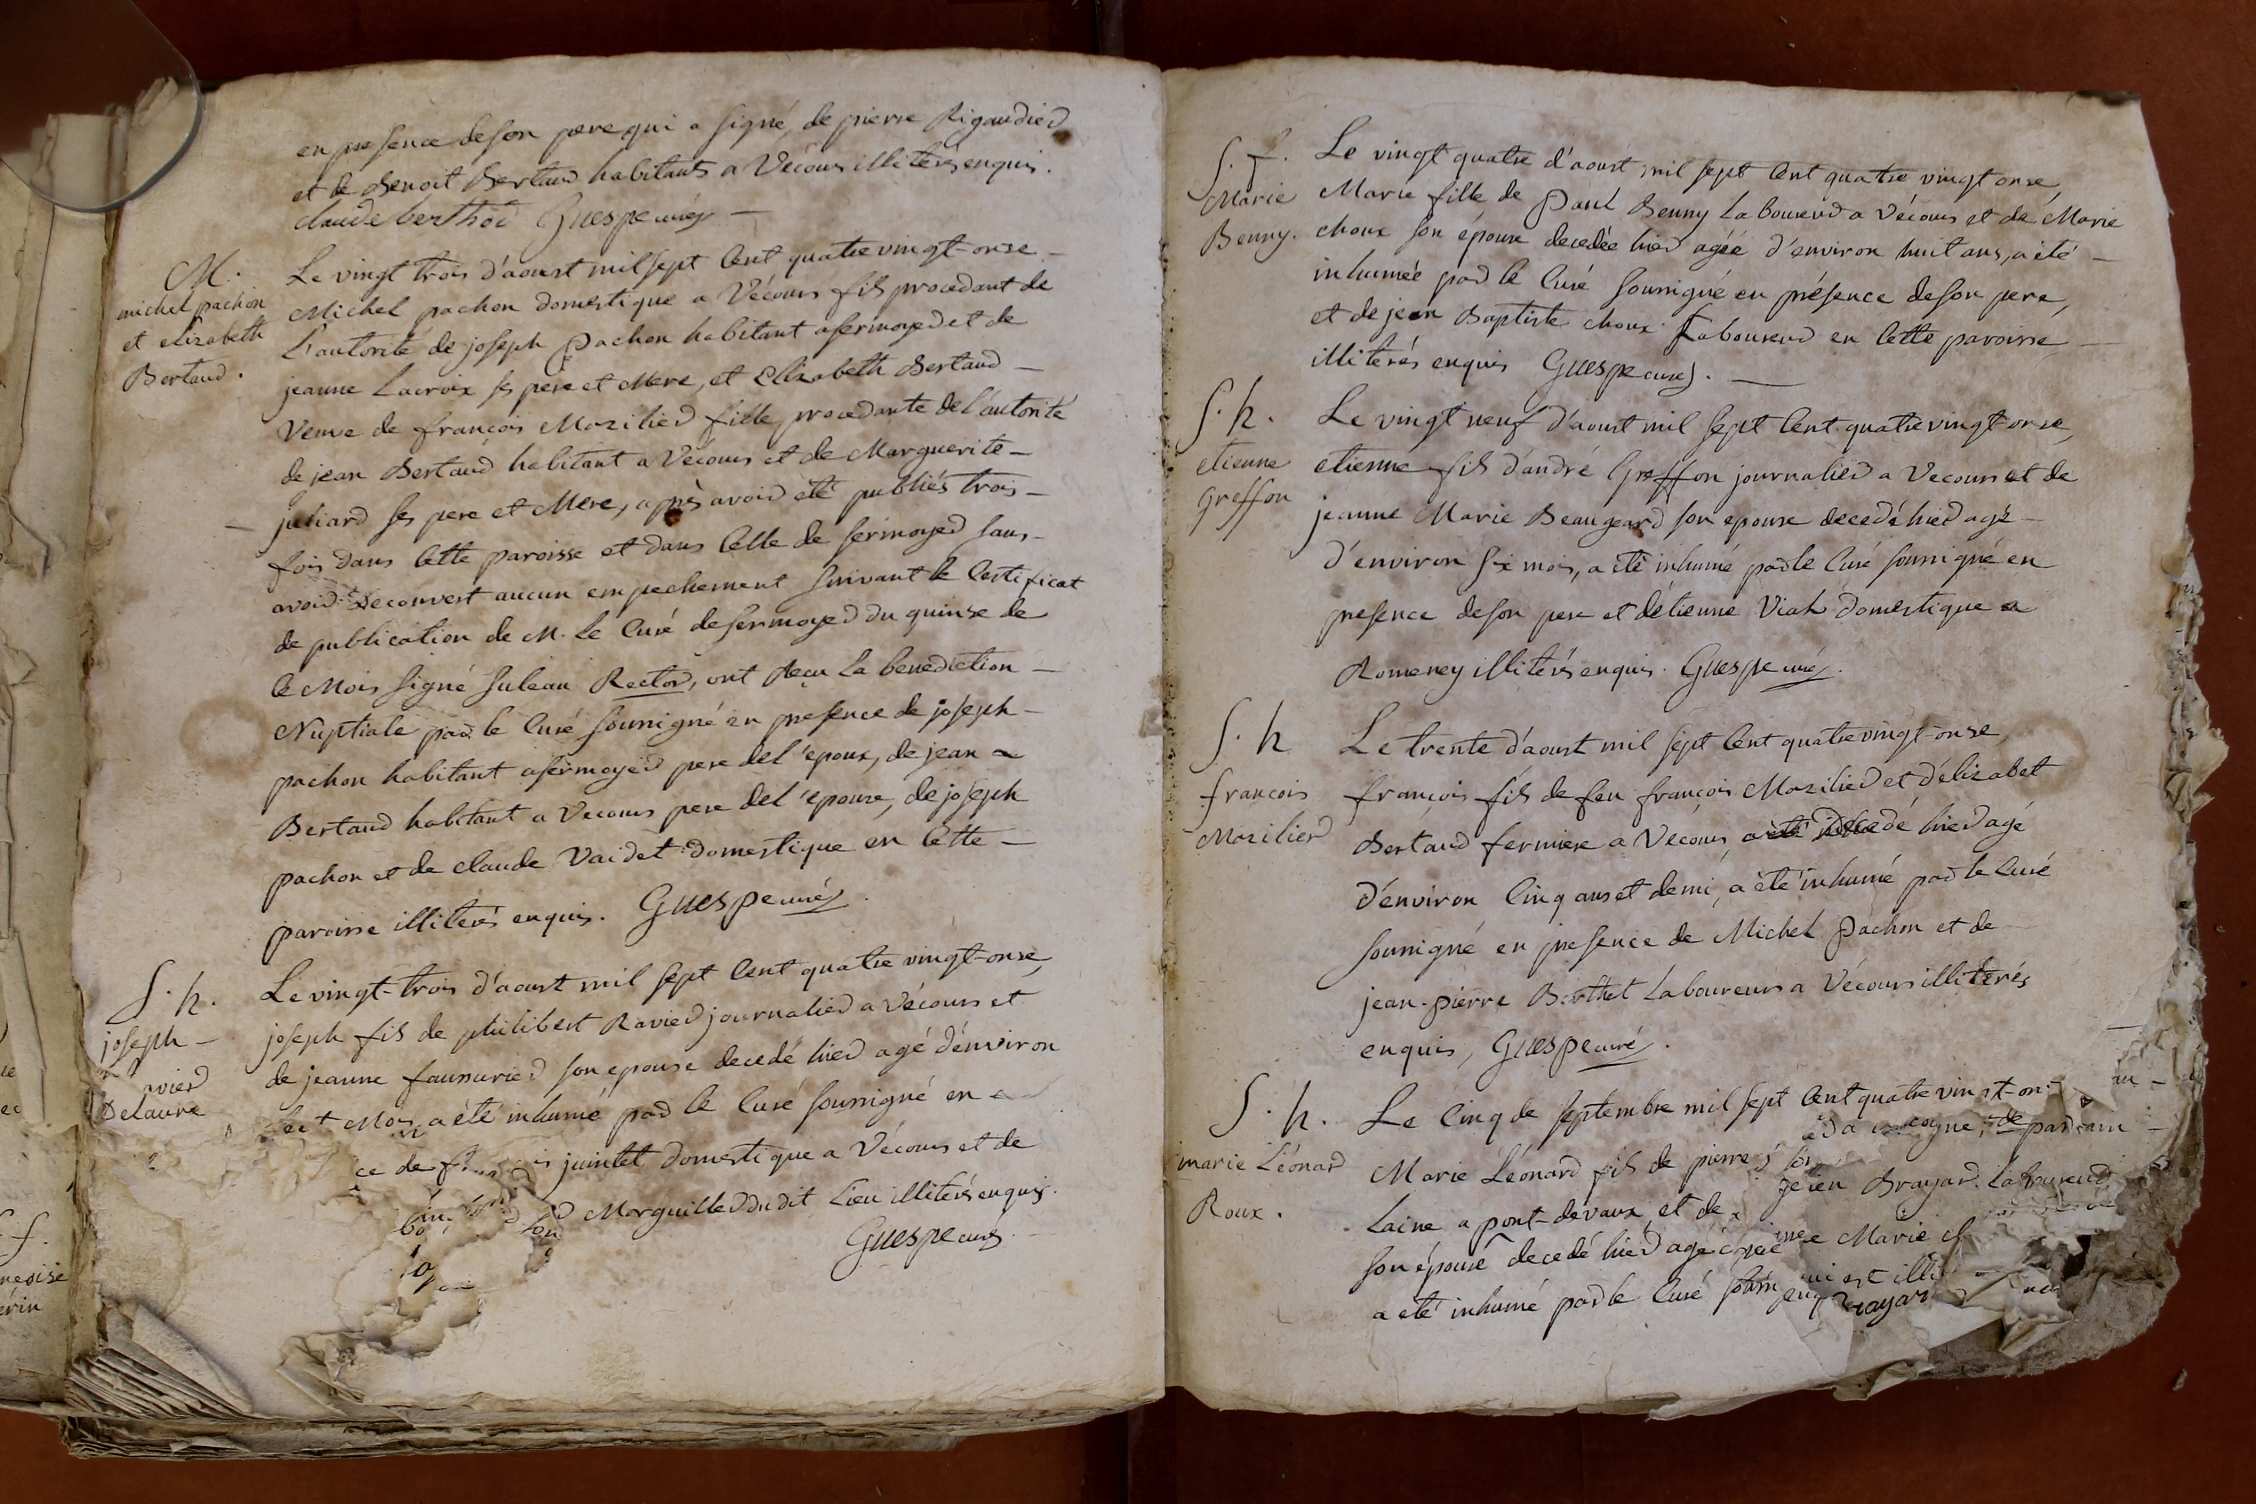 en presence de son pere qui a signé, de pierre Rigaudier
et de Benoit Bertaud habitants a Vécours illiterés enquis.
claude berthod Guespe curé
M.
michel pachon
et elizabeth
Bertaud.
Le vingt trois d'aoust mil sept cent quatre vingt-onse
Michel pachon domestique a Vécours fils procedant de
L'autorité de joseph Pachon habitant a sermoyer et de
jeanne Lacroix ses pere et Mere, et Elizabeth Bertaud
Veuve de françois Mozilier fille procedante de l'autorité
de jean Bertaud habitant a Vécours et de Marguerite
juliard ses pere et Mere, après avoir été publiés trois
fois dans cette paroisse et dans celle de sermoyer sans
avoir decouvert aucun empechement suivant le certificat
de publication de M. Le curé de sermoyer du quinse de
ce Mois signé Juleau Rector, ont reçu la benediction
Nuptiale par le curé soussigné en presence de joseph
pachon habitant a sermoyer pere de l'epoux, de jean
Bertaud habitant a Vecours pere de l'epouse, de joseph
pachon et de claude Vaidet domestique en cette
paroisse illiterés enquis. Guespe curé
S. h.
joseph
avier
Delaure
Le vingt-trois d'aoust mil sept cent quatre vingt-onse,
joseph fils de philibert Ravier journalier a Vécours et
de jeanne faussurier son epouse decedé hier agé d'environ
Mois a été inhumé par le curé soussigné en
ce de juintet domestique a Vécours et de
Marguiller du dit Lieu illiterés enquis.
Guespe curé
S. f.
Marie
Benny.
Le vingt quatre d'aoust mil sept cent quatre vingt onse,
Marie fille de Paul Benny Laboureur a Vécours et de Marie
choux son épouse decedée hier agée d'environ huit ans, a été
inhumée par le curé soussigné en présence de son pere,
et de jean Baptiste choux Laboureur en cette paroisse,
illiterés enquis Guespe curé.
S. h.
etienne
Greffon
Le vingt neuf d'aoust mil sept cent quatre vingt onse,
etienne fils d'andré Greffon journalier a Vecours et de
jeanne Marie Beaugeard son epouse decedé hier agé
d'environ six mois, a été inhumé par le curé soussigné en
presence de son pere et d'etienne Viah domestique a
Romeney illiterés enquis. Guespe curé.
S. h
francois
Mozilier
Le trente d'aoust mil sept cent quatre vingt-onse,
françois fils de feu françois Mozilier et d'elizabet
Bertaud fermiere a Vécours decedé hier agé
d'environ cinq ans et demi, a été inhumé par le curé
soussigné en presence de Michel Pachon et de
jean-pierre Berthet Laboureurs a Vécours illiterés
enquis, Guespe curé.
S. h.
marie Léonard
Roux.
Le cinq de septembre mil sept cent quatre vingt-on
Marie Léonard fils de pierre
Laine a pont-de-vaux et de Brayard Laboureur
son épouse decedé hier agé Marie
a été inhumé par le curé